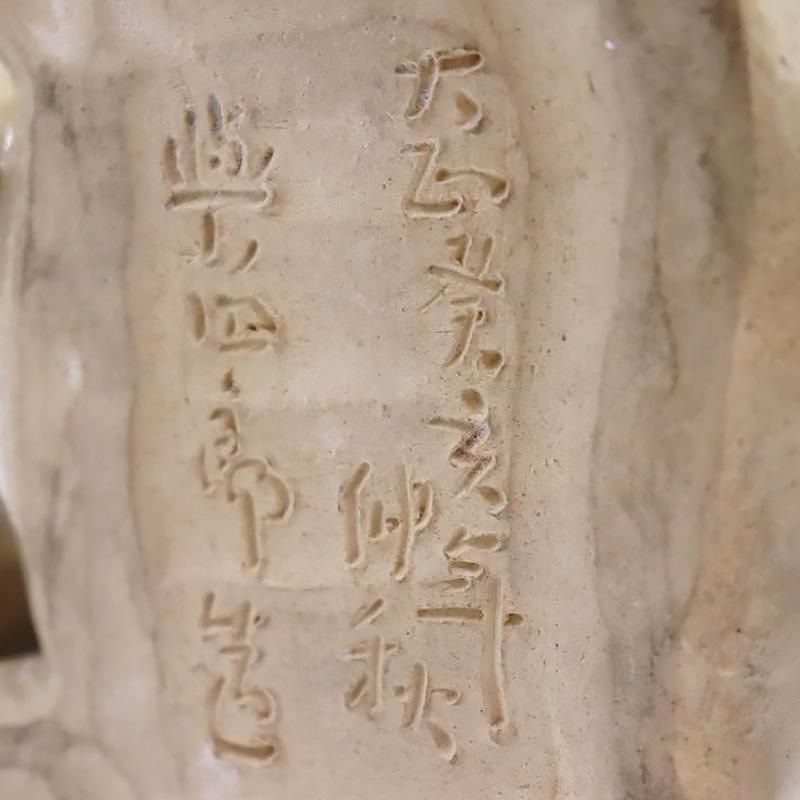 大正癸亥年
仲秋
榮四郎造